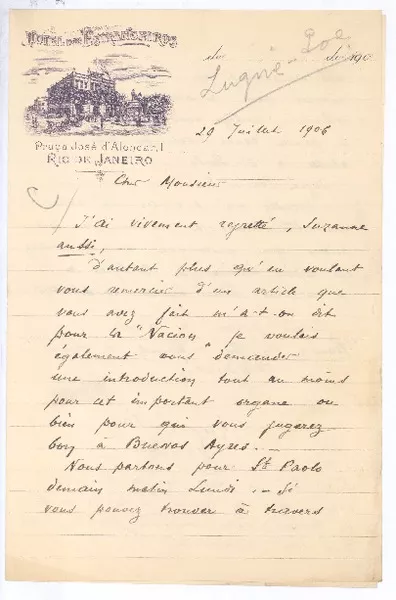 HOTEL DOS ESTRANGEIROS
Praça José d'Alencar, 1
RIO DE JANEIRO
de 190
Lugné-Poe
29 Juillet 1906
Cher Monsieur
J'ai vivement regretté, Suzanne
aussi,
d'autant plus qu'en voulant
vous remercier d'un article que
vous avez fait m'a-t-on dit
pour la "Nacion" je voulais
également vous demander
une introduction tout au moins
pour cet important organe ou
bien pour qui vous jugerez
bon à Buenos Ayres. _
Nous partons pour St Paolo
demain matin Lundi. _ Si
vous pouvez trouver à travers